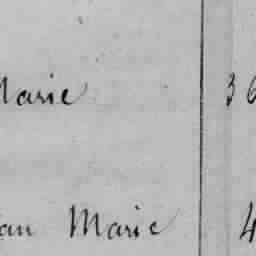 Marie 36
an Marie 4